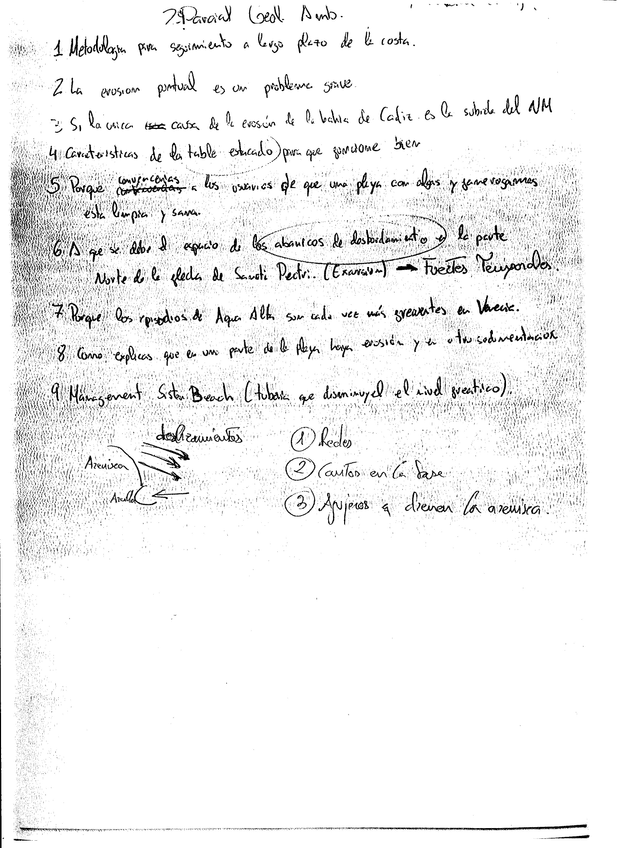 2º Parcial Geol. Amb.
1 Metodología para seguimiento a largo plazo de la costa.
2 La erosion puntual es un problema grave
3 Si la unica causa de la erosión de la bahia de Cadiz es la subida del NM
4 Caracteristicas de la table estacado para que funcione bien
5 Porque convencerias a los usuarios de que una playa con algas y fanerogamas
esta limpia y sana.
6. A que se debe el espacio de los abanicos de desbordamiento en la parte
Norte de la flecha de Sancti Pectri. (Excursion) → Fuertes Temporales.
7 Porque los episodios de Aqua Alta son cada vez más frecuentes en Venecia.
8 Como explicas que en una parte de la playa haya erosión y en otra sedimentacion
9 Management Sistem Beach (tuberia que disminuye el nivel freatico).
deslizamientos
Arenisca
Arcilla
1 Redes
2 Cantos en la base
3 Agujeros q drenen la arenisca.